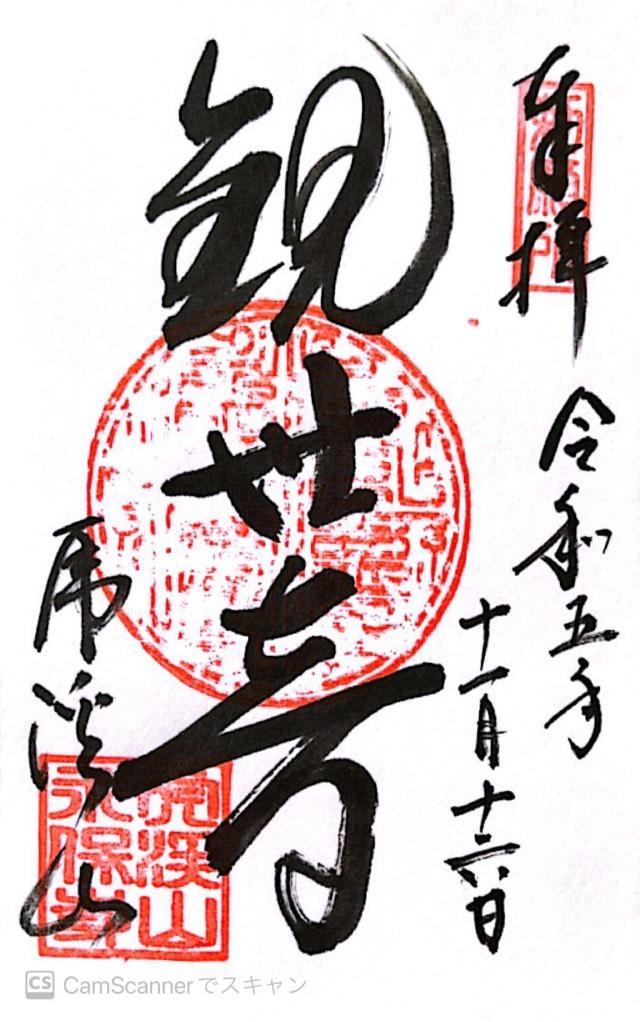 奉拝
令和五年
十一月十六日
観世音
虎渓山
虎渓山
永保寺
CS CamScannerでスキャン